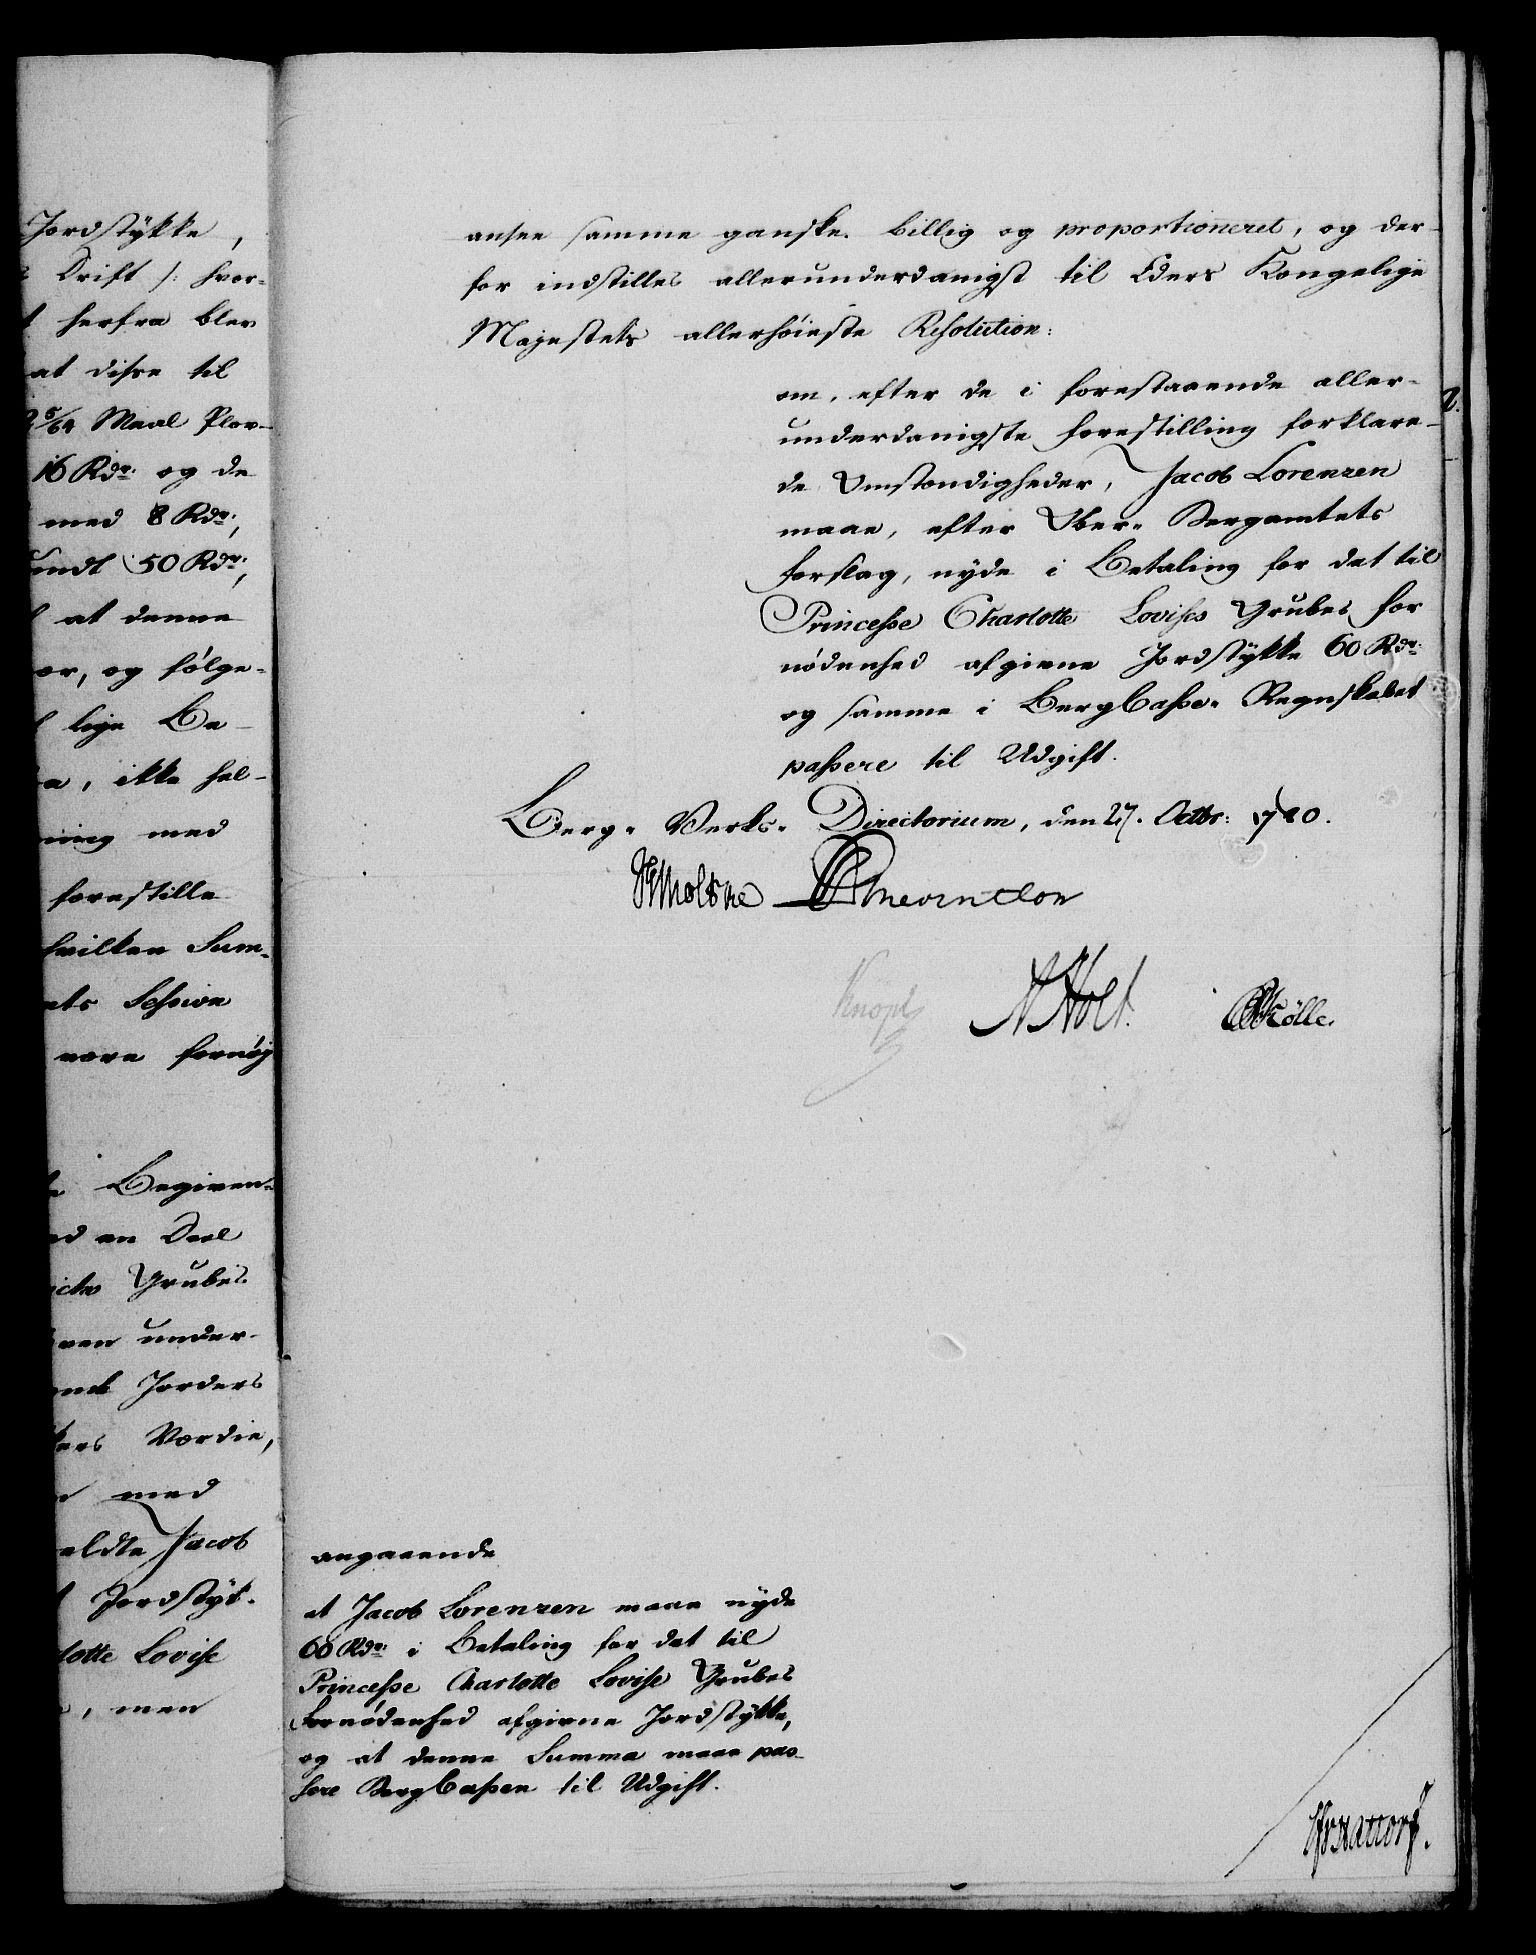 Jordstykke,
Drift /: hvor-
herfra blev
at disse til
5/64 Maal Plov-
16 Rdr. og de
med 8 Rdr.,
50 Rdr.,
at denne
or, og følge-
lige Be-
, ikke hel-
ning med
forestille
hvilken Sum-
ets Session
være fornøy
Begiven-
ed en Deel
Grubes
ven under-
Jorders
kers Værdie,
med
eldte Jacob
Jordstyk-
lotte Lovise
, men
ansee samme ganske billig og proportioneret, og der-
for indstilles allerunderdanigst til Eders Kongelige
Majestets allerhøieste Resolution:
om, efter de i forestaaende aller-
underdanigste Forestilling forklare-
de Omstændigheder, Jacob Lorenzen
maae, efter Ober-Bergamtets
Forslag, nyde i Betaling for det til
Princesse Charlotte Lovises Grubes For
nødenhed afgivne Jordstykke 60 Rdr.
og samme i BergCasse-Regnskabet
passere til Udgift.
Berg-Verks-Directorium, den 27. Octbr: 1780.
Moltke Scheventlow
Knoph
Holt.
Kölle.
angaaende
at Jacob Lorenzen maae nyde
60 Rdr. i Betaling for det til
Princesse Charlotte Lovise Grubes
Fornødenhed afgivne Jordstykke,
og at denne Summa maae pas-
sere BergCassen til Udgift.